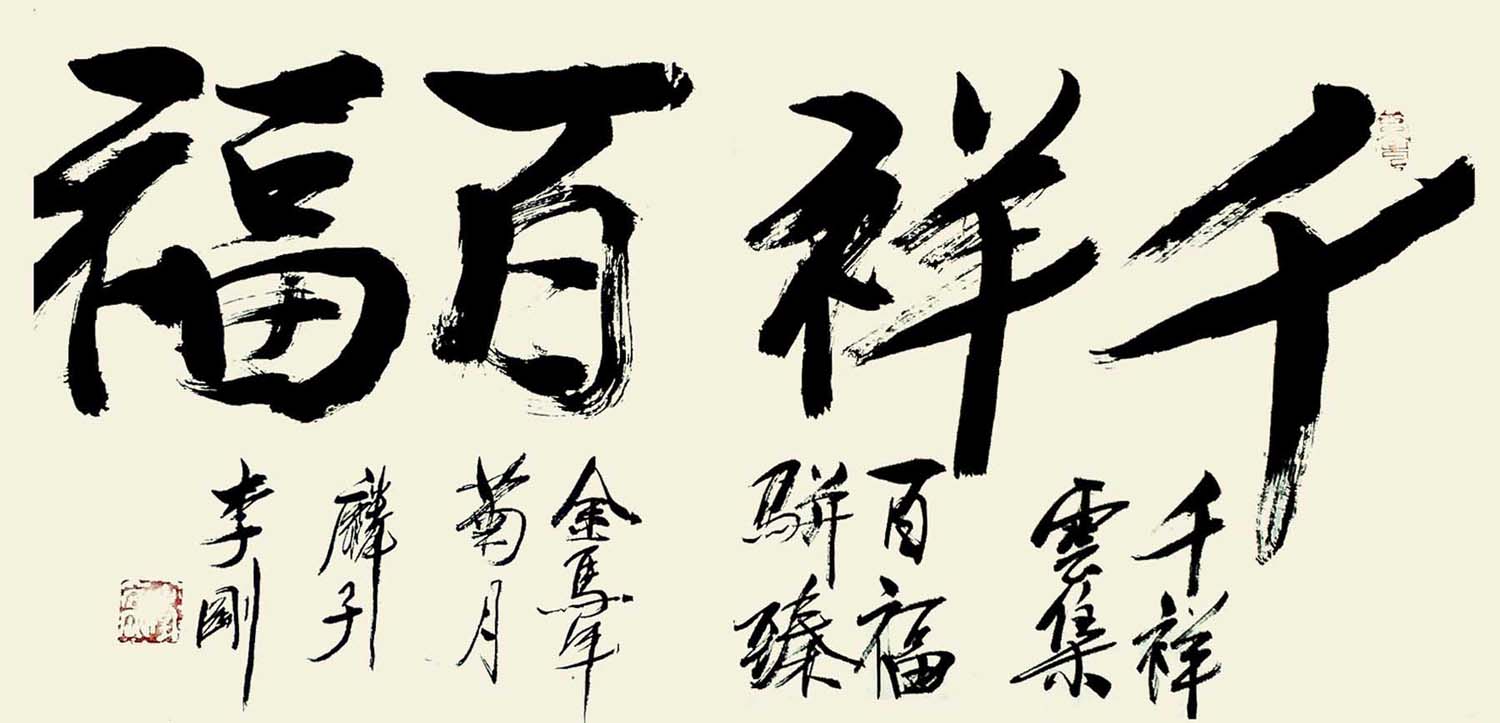 千祥百福
千祥
雲集
百福
駢臻
金馬年
菊月
麟子
李剛